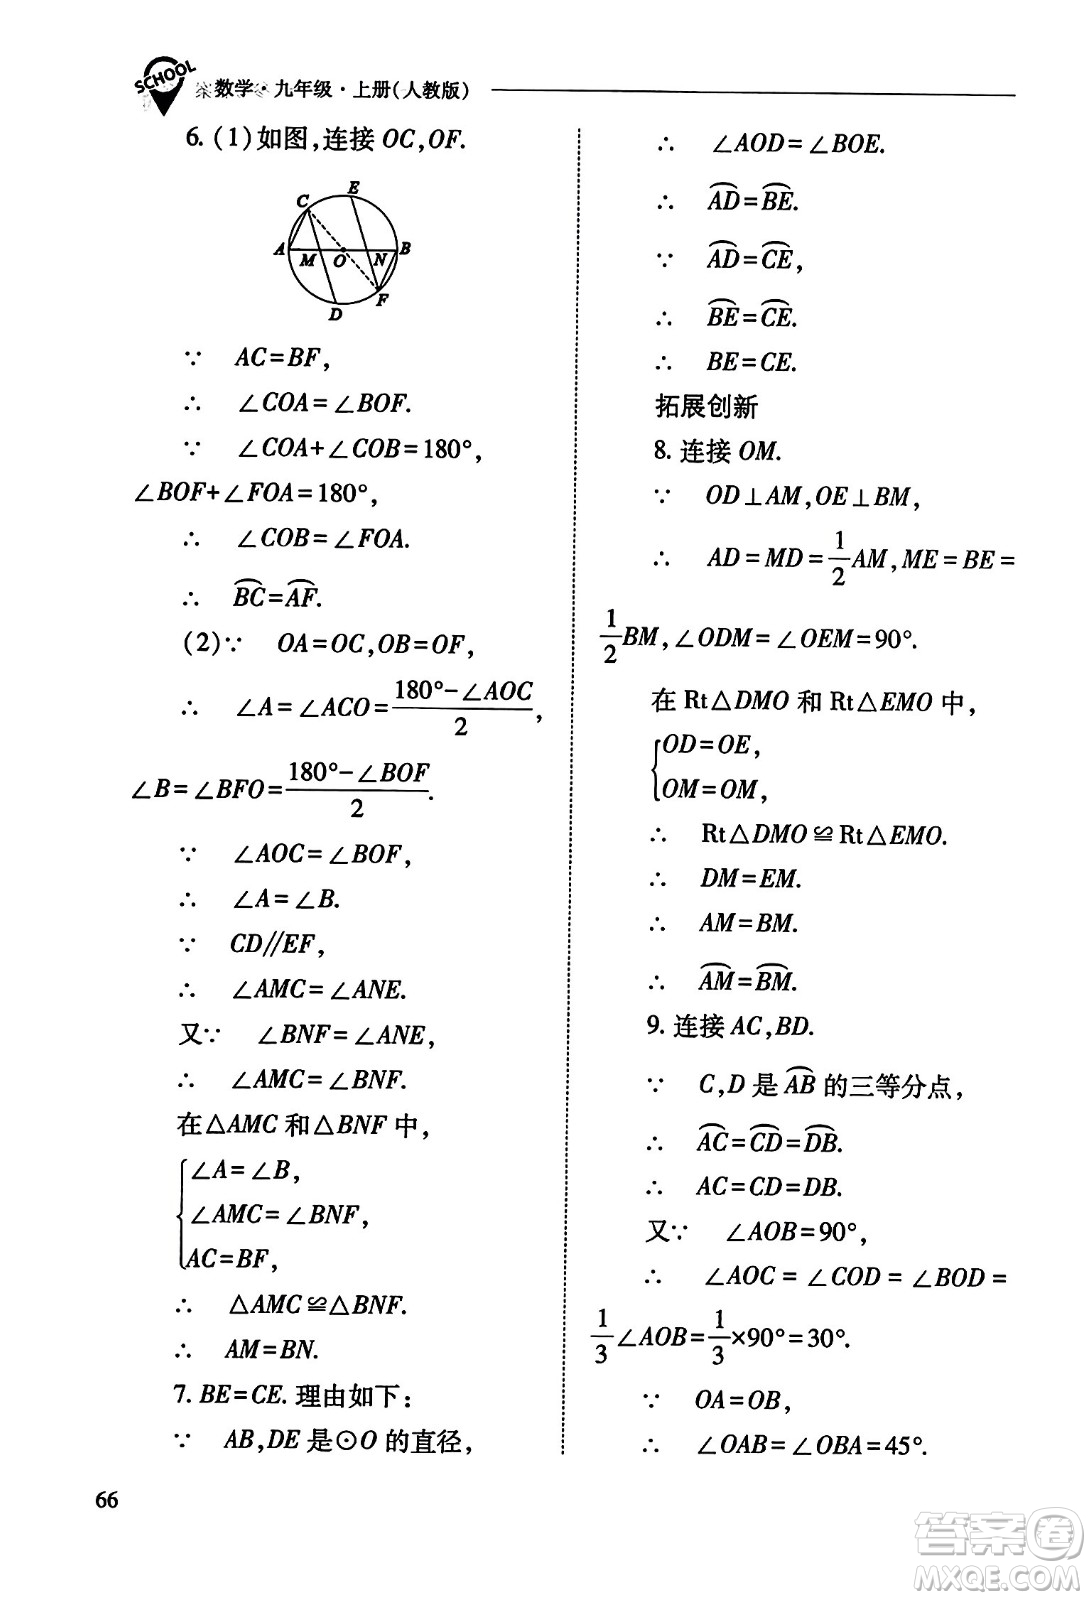 SCHOOL
数学·九年级·上册(人教版)
6. (1)如图,连接 OC,OF.
C E
A M O N B
D F
∵ AC=BF,
∴ ∠COA=∠BOF.
∵ ∠COA+∠COB=180°,
∠BOF+∠FOA=180°,
∴ ∠COB=∠FOA.
∴ B͡C=A͡F.
(2)∵ OA=OC,OB=OF,
∴ ∠A=∠ACO=(180°-∠AOC)/2,
∠B=∠BFO=(180°-∠BOF)/2.
∵ ∠AOC=∠BOF,
∴ ∠A=∠B.
∵ CD∥EF,
∴ ∠AMC=∠ANE.
又∵ ∠BNF=∠ANE,
∴ ∠AMC=∠BNF.
在△AMC 和△BNF 中,
{∠A=∠B,
∠AMC=∠BNF,
AC=BF,
∴ △AMC≌△BNF.
∴ AM=BN.
7. BE=CE. 理由如下:
∵ AB,DE 是⊙O 的直径,
∴ ∠AOD=∠BOE.
∴ A͡D=B͡E.
∵ A͡D=C͡E,
∴ B͡E=C͡E.
∴ BE=CE.
拓展创新
8. 连接 OM.
∵ OD⊥AM,OE⊥BM,
∴ AD=MD=1/2AM,ME=BE=
1/2BM,∠ODM=∠OEM=90°.
在 Rt△DMO 和 Rt△EMO 中,
{OD=OE,
OM=OM,
∴ Rt△DMO≌Rt△EMO.
∴ DM=EM.
∴ AM=BM.
∴ A͡M=B͡M.
9. 连接 AC,BD.
∵ C,D 是 A͡B 的三等分点,
∴ A͡C=C͡D=D͡B.
∴ AC=CD=DB.
又∵ ∠AOB=90°,
∴ ∠AOC=∠COD=∠BOD=
1/3∠AOB=1/3×90°=30°.
∵ OA=OB,
∴ ∠OAB=∠OBA=45°.
66
答案卷
MXQE.COM